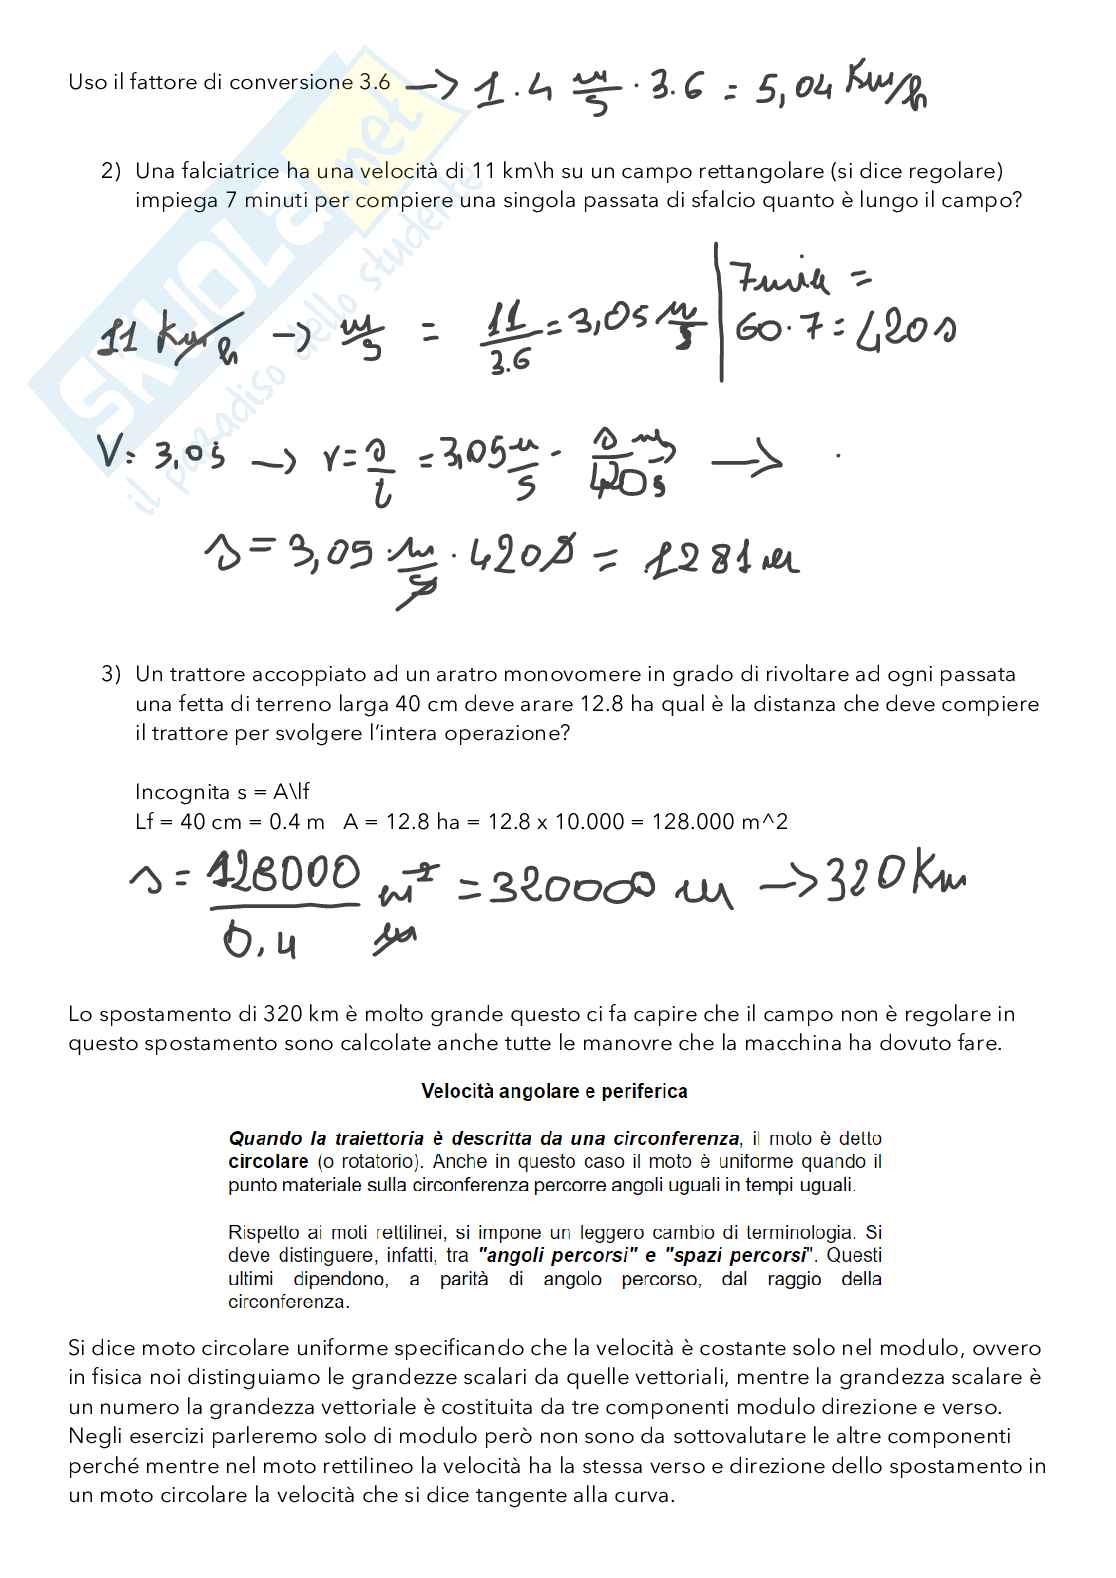 Uso il fattore di conversione 3.6 → 1.4 m/s · 3.6 = 5,04 Km/h
2) Una falciatrice ha una velocità di 11 km\h su un campo rettangolare (si dice regolare)
impiega 7 minuti per compiere una singola passata di sfalcio quanto è lungo il campo?
11 km/h → m/s = 11/3.6 = 3,05 m/s | 7 min =
60·7 = 420 s
V= 3,05 → v = s/t = 3,05 m/s - s m/420 s →
s = 3,05 · m/s · 420 s = 1281 m
3) Un trattore accoppiato ad un aratro monovomere in grado di rivoltare ad ogni passata
una fetta di terreno larga 40 cm deve arare 12.8 ha qual è la distanza che deve compiere
il trattore per svolgere l’intera operazione?
Incognita s = A\lf
Lf = 40 cm = 0.4 m A = 12.8 ha = 12.8 x 10.000 = 128.000 m^2
s = 128000/0,4 m²/m = 320000 m → 320 Km
Lo spostamento di 320 km è molto grande questo ci fa capire che il campo non è regolare in
questo spostamento sono calcolate anche tutte le manovre che la macchina ha dovuto fare.
Velocità angolare e periferica
Quando la traiettoria è descritta da una circonferenza, il moto è detto
circolare (o rotatorio). Anche in questo caso il moto è uniforme quando il
punto materiale sulla circonferenza percorre angoli uguali in tempi uguali.
Rispetto ai moti rettilinei, si impone un leggero cambio di terminologia. Si
deve distinguere, infatti, tra "angoli percorsi" e "spazi percorsi". Questi
ultimi dipendono, a parità di angolo percorso, dal raggio della
circonferenza.
Si dice moto circolare uniforme specificando che la velocità è costante solo nel modulo, ovvero
in fisica noi distinguiamo le grandezze scalari da quelle vettoriali, mentre la grandezza scalare è
un numero la grandezza vettoriale è costituita da tre componenti modulo direzione e verso.
Negli esercizi parleremo solo di modulo però non sono da sottovalutare le altre componenti
perché mentre nel moto rettilineo la velocità ha la stessa verso e direzione dello spostamento in
un moto circolare la velocità che si dice tangente alla curva.
SKUOLA.net
il paradiso dello studente